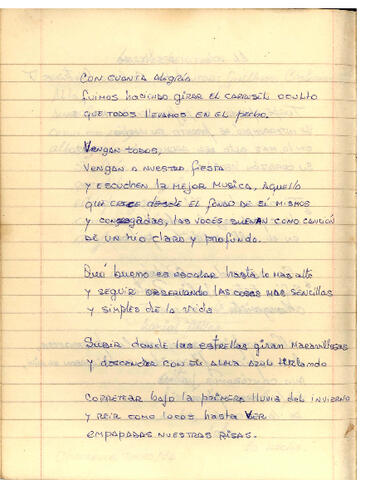 CON CUANTA ALEGRÍA
FUIMOS HACIENDO GIRAR EL CARRUSEL OCULTO
QUE TODOS LLEVAMOS EN EL PECHO.
VENGAN TODOS,
VENGAN A NUESTRA FIESTA
Y ESCUCHEN LA MEJOR MUSICA, AQUELLA
QUE CRECE DESDE EL FONDO DE SÍ MISMOS
Y CONGREGADAS, LAS VOCES SUENAN COMO CANCIÓN
DE UN RÍO CLARO Y PROFUNDO.
QUÉ BUENO ES ESCALAR HASTA LO MÁS ALTO
Y SEGUIR OBSERVANDO LAS COSAS MAS SENCILLAS
Y SIMPLES DE LA VIDA
SUBIR DONDE LAS ESTRELLAS GIRAN MARAVILLOSAS
Y DESCENDER CON EL ALMA AZUL
CORRETEAR BAJO LA PRIMERA LLUVIA DEL INVIERNO
Y REIR COMO LOCOS HASTA VER
EMPAPADAS NUESTRAS RISAS.